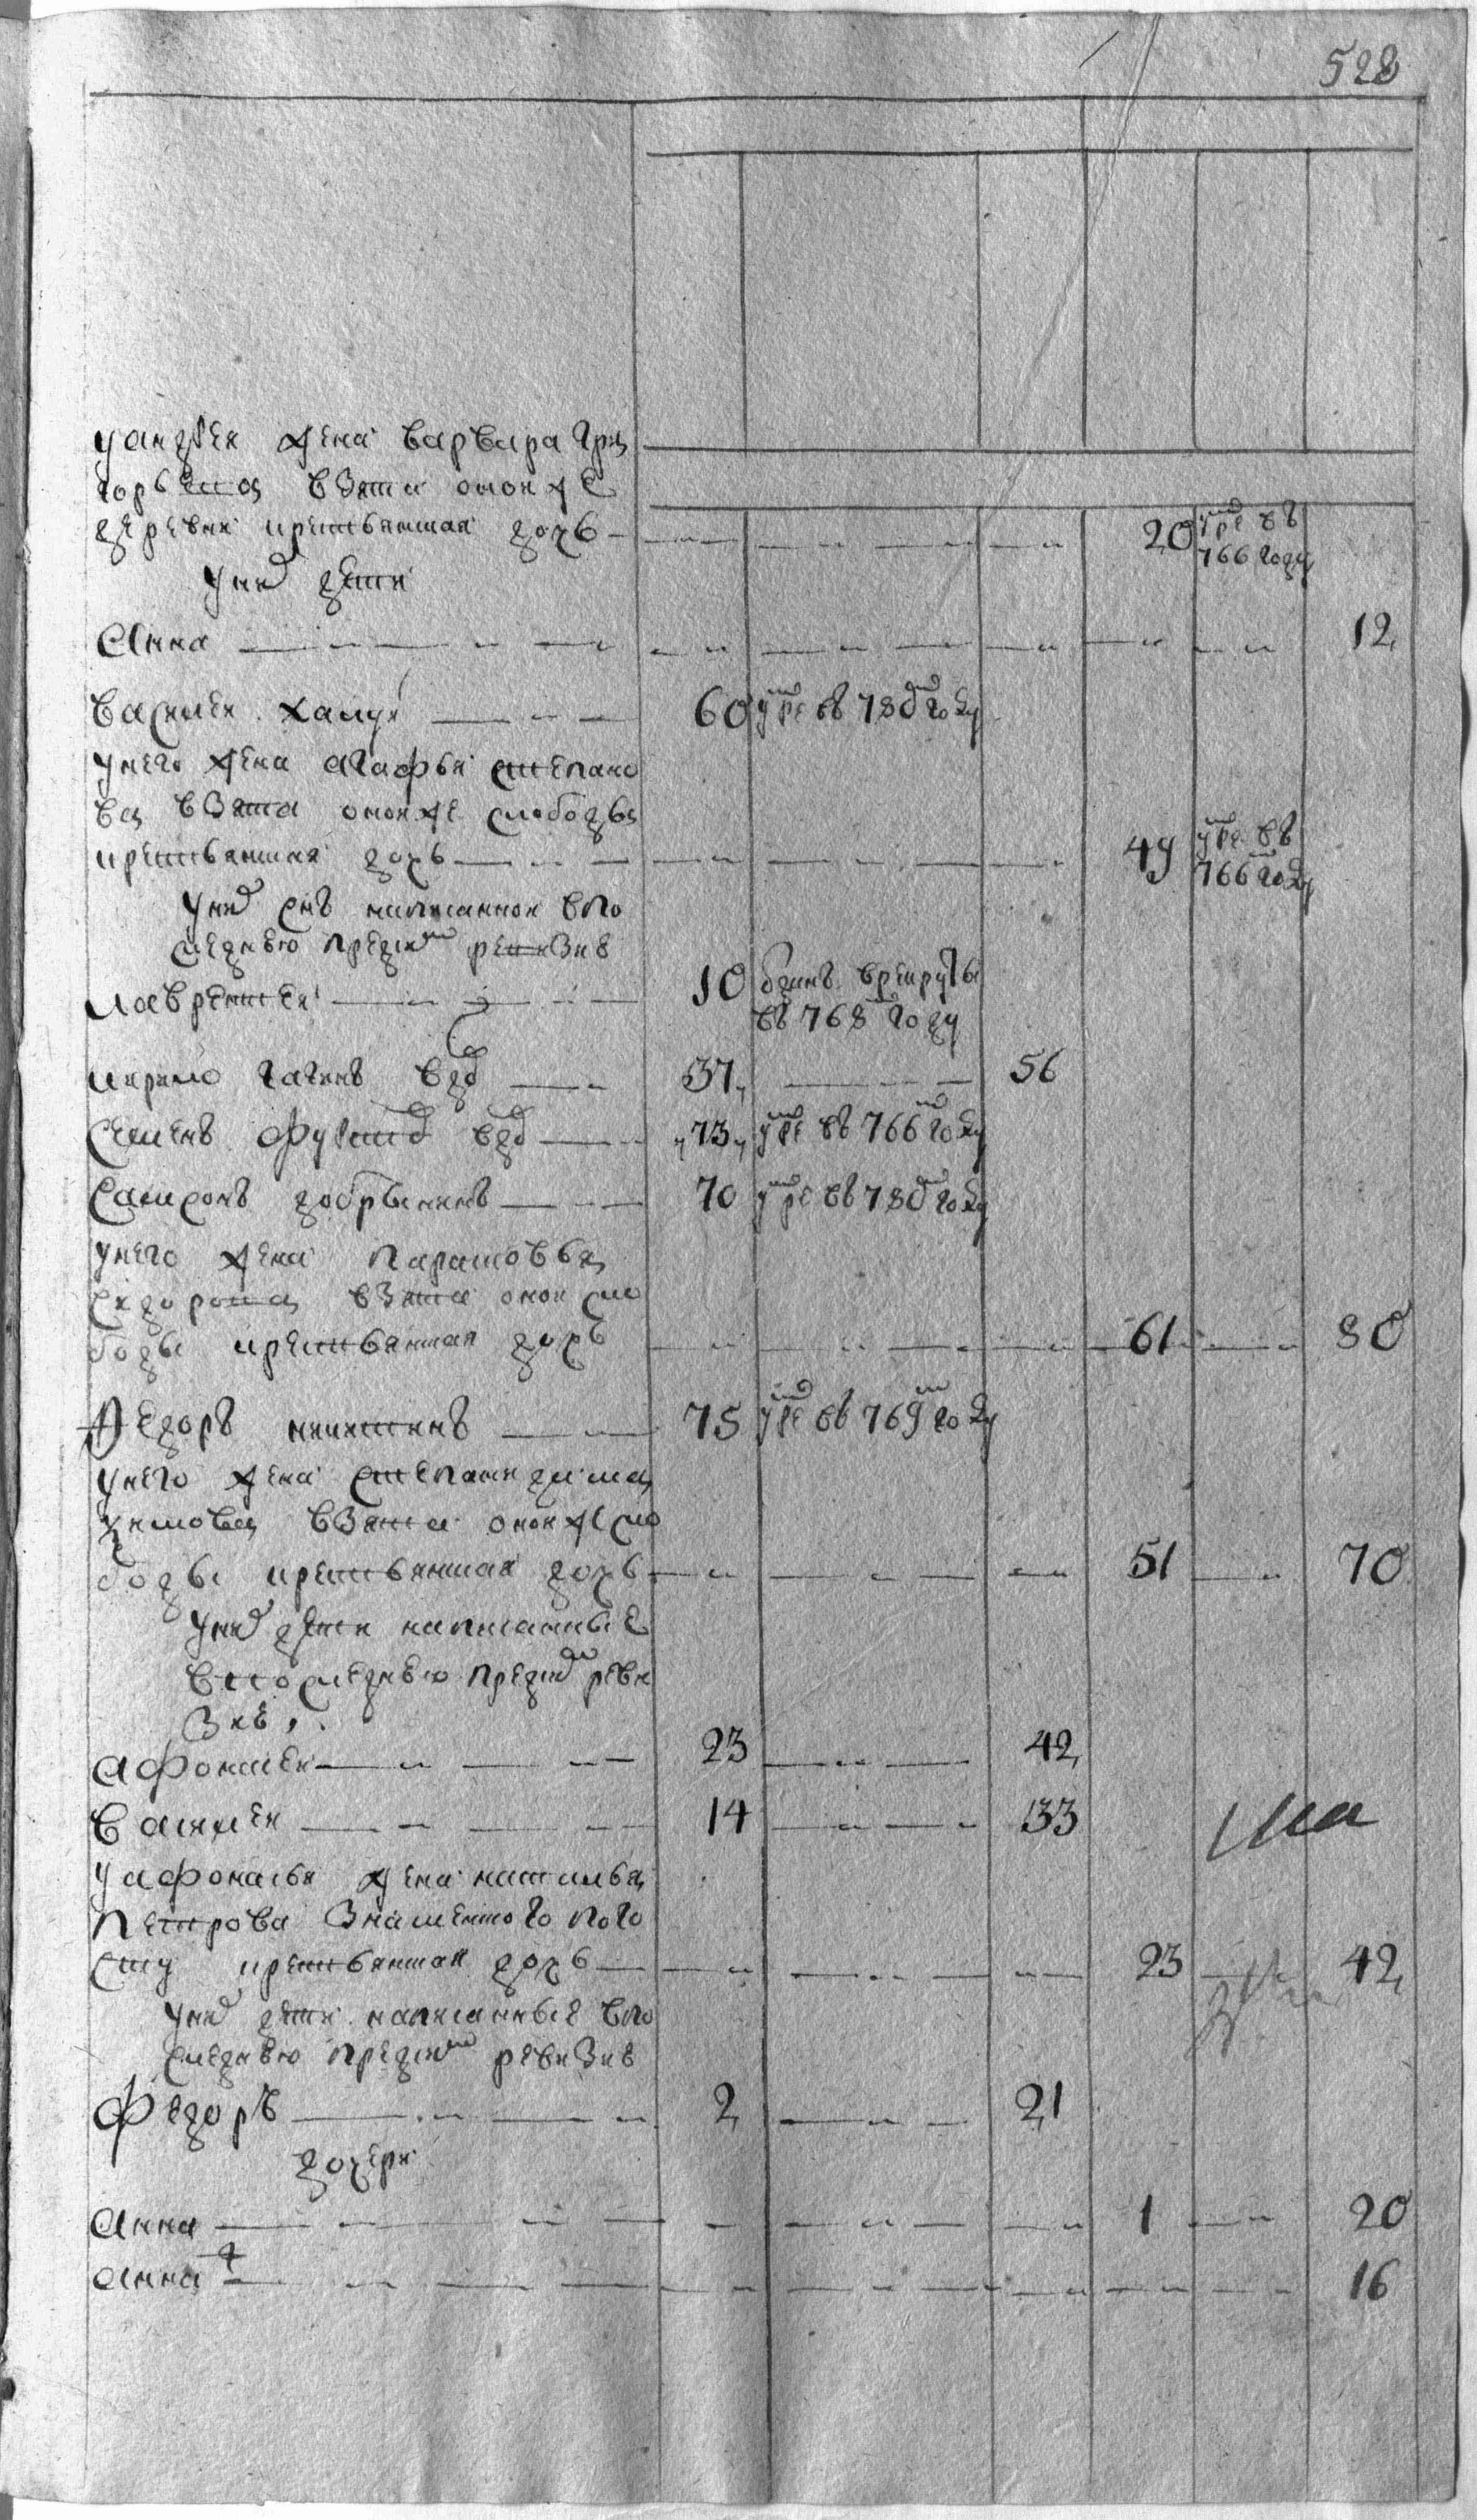 528
уандрея жена варвара гри
горьева взята оной же
деревни крестьянская дочь — 20 умре въ
766 году
у ней дети
Анна — 12
Василей — 60 умре въ 780 году
у него жена агафья степано
ва взята оной же слободы
крестьянская дочь — 49 умре въ
766 году
у ней сынъ написанной впо
следнею пред ревизию
лаврентей — 10 отданъ врекруты
въ 768 году
вдовъ — 37 — 56
Семенъ вдовъ — 73 умре въ 766 году
Самсонъ добрынинъ — 70 умре въ 780 году
у него жена парасковья
сидорова взята оной сло
боды крестьянская дочь — 61 — 80
Федоръ никитинъ — 75 умре въ 769 году
у него жена степанида
взята оной же сло
боды крестьянская дочь — 51 — 70
у ней дети написанные
впоследнею пред реви
зию
афонасей — 23 — 42
Василей — 14 — 33
у афонасья жена наталья
петрова знаменского пого
сту крестьянская дочь — 23 — 42
у ней дети написанные впо
следнею пред ревизию
Федоръ — 2 — 21
дочери
Анна — 1 — 20
Анна — 16